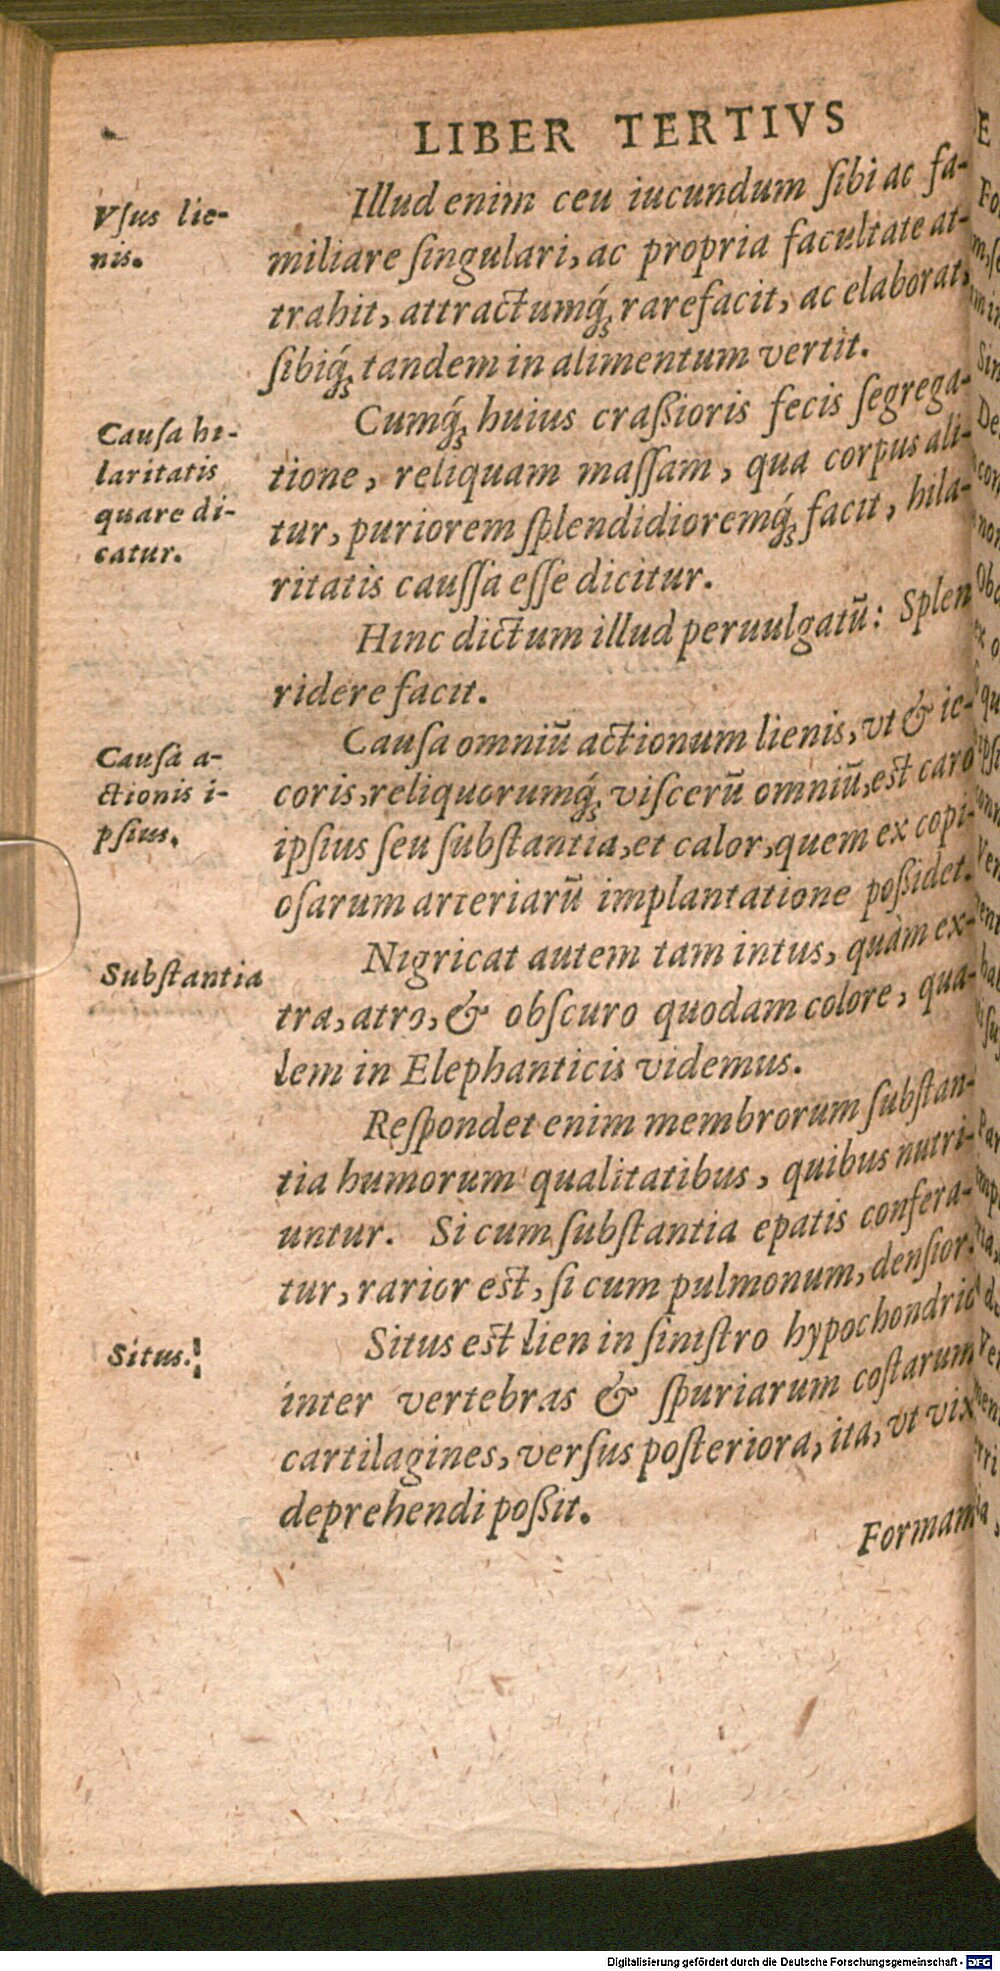 LIBER TERTIVS
Vſus lie-
nis.
Illud enim ceu iucundum ſibi ac fa-
miliare ſingulari, ac propria facultate at-
trahit, attractumq́; rarefacit, ac elaborat,
ſibiq́; tandem in alimentum vertit.
Cauſa hi-
laritatis
quare di-
catur.
Cumq́; huius craßioris fecis ſegrega-
tione, reliquam maſſam, qua corpus ali-
tur, puriorem ſplendidioremq́; facit, hila-
ritatis cauſſa eſſe dicitur.
Hinc dictum illud peruulgatū: Splen
ridere facit.
Cauſa a-
ctionis i-
pſius.
Cauſa omniū actionum lienis, vt & ie-
coris, reliquorumq́; viſcerū omniū, est caro
ipſius ſeu ſubſtantia, et calor, quem ex copi-
oſarum arteriarū implantatione poßidet.
Subſtantia
Nigricat autem tam intus, quàm ex-
tra, atro, & obſcuro quodam colore, qua-
lem in Elephanticis videmus.
Reſpondet enim membrorum ſubſtan-
tia humorum qualitatibus, quibus nutri-
untur. Si cum ſubſtantia epatis confera-
tur, rarior est, ſi cum pulmonum, denſior.
Situs.
Situs est lien in ſiniſtro hypochondrio
inter vertebras & ſpuriarum coſtarum
cartilagines, verſus poſteriora, ita, vt vix
deprehendi poßit.
Formam
Digitalisierung gefördert durch die Deutsche Forschungsgemeinschaft - DFG